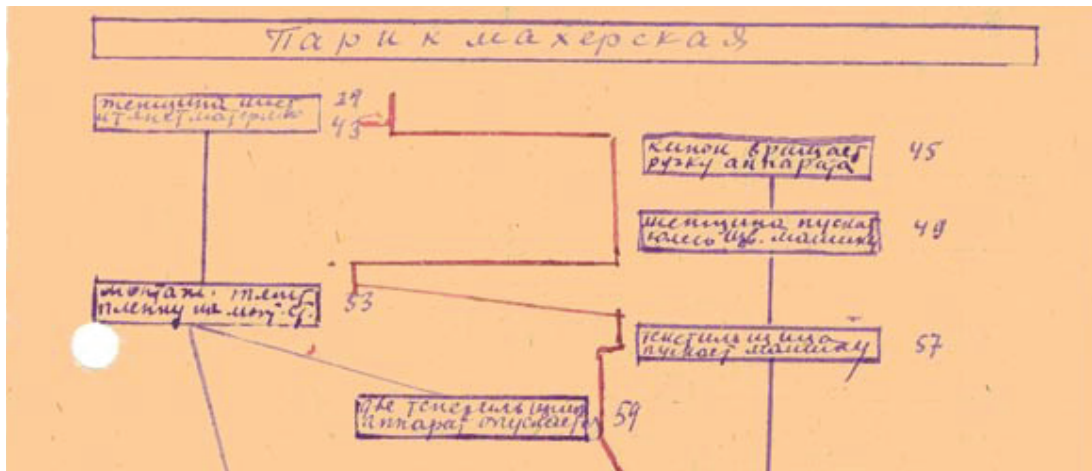 Парикмахерская
женщина шьет
и тянет материю
29
43
кинок вращает
ручку аппарата
45
женщина пускает
колесо шв. машины
49
монтаж: тянет
пленку на монт. ст.
53
текстильщица
пускает машину
57
две текстильщицы
аппарат опускается
59